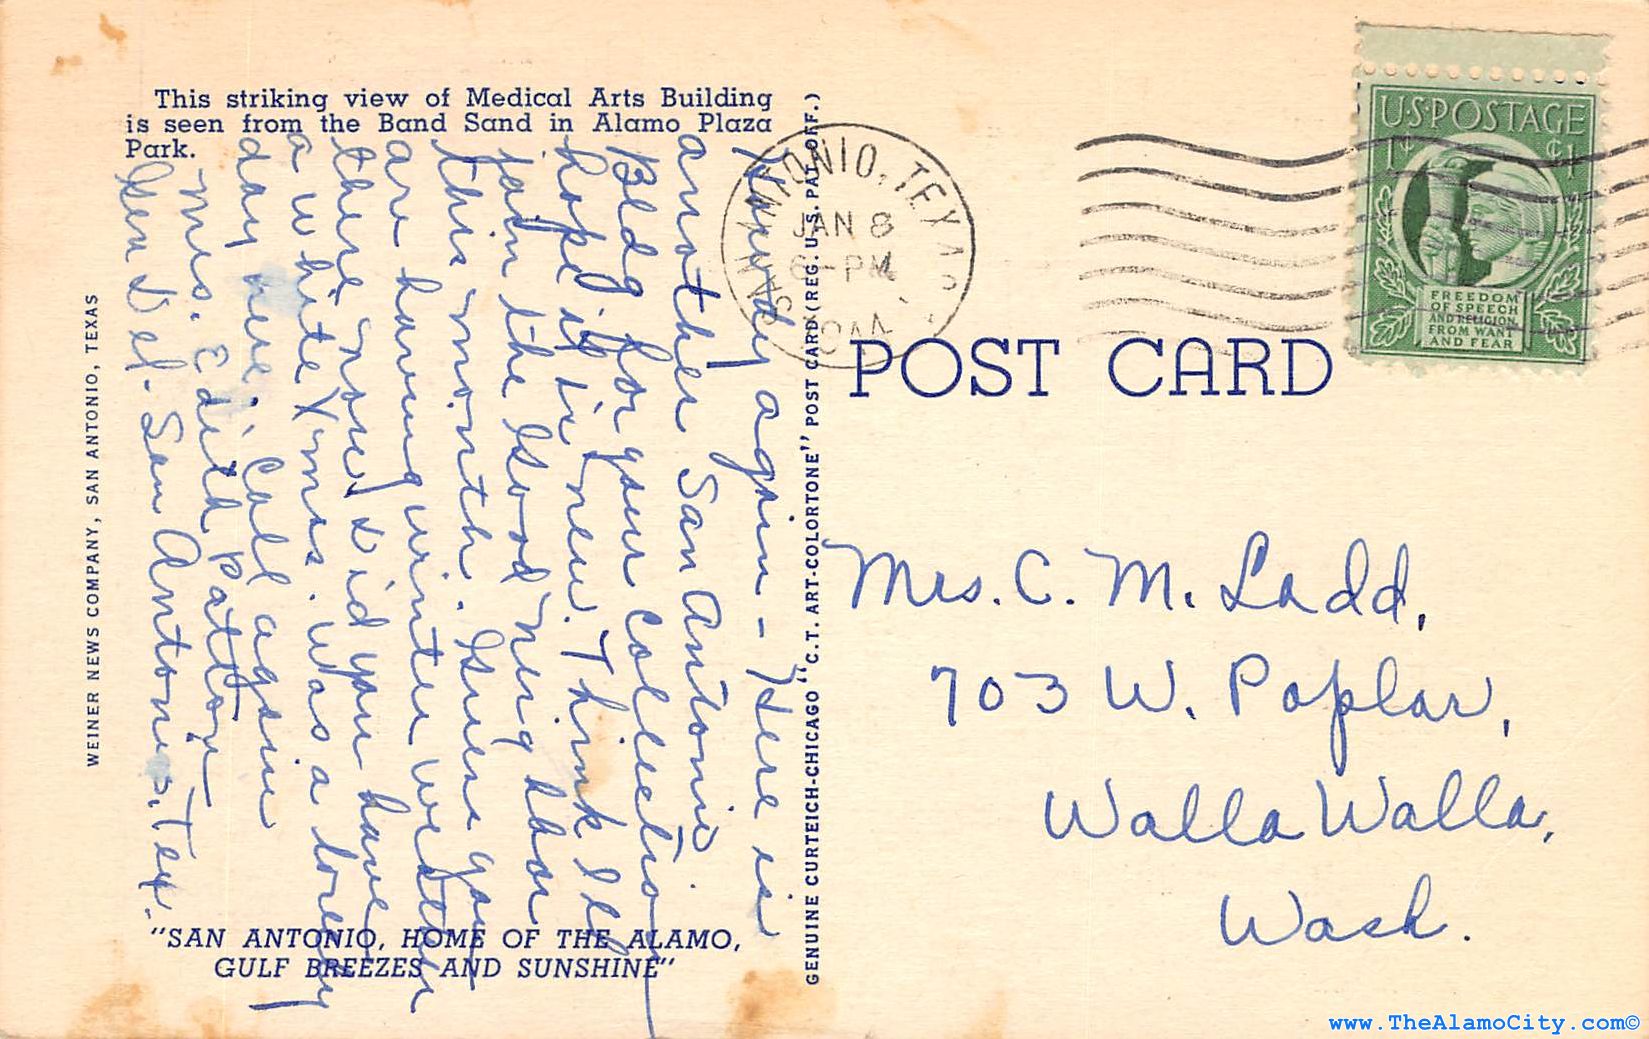 This striking view of Medical Arts Building
is seen from the Band Sand in Alamo Plaza
Park.
Howdy again - Here is
another San Antonio
Bldg for your collection
hope it is new. Think I'll
join the "Good Neighbor"
this month. Guess you
are having winter weather
there now, did you have
a white Xmas. Was a lovely
day here. Call again
Mrs. Edith Patton
Gen Del. San Antonio, Tex.
"SAN ANTONIO, HOME OF THE ALAMO,
GULF BREEZES AND SUNSHINE"
WEINER NEWS COMPANY, SAN ANTONIO, TEXAS
GENUINE CURTEICH-CHICAGO "C.T. ART-COLORTONE" POST CARD (REG. U.S. PAT. OFF.)
SAN ANTONIO, TEXAS
JAN 8
6-PM
U·S·POSTAGE
1¢ ¢1
FREEDOM
OF SPEECH
AND RELIGION,
FROM WANT
AND FEAR
POST CARD
Mrs. C. M. Ladd,
703 W. Poplar,
Walla Walla,
Wash.
www.TheAlamoCity.com©